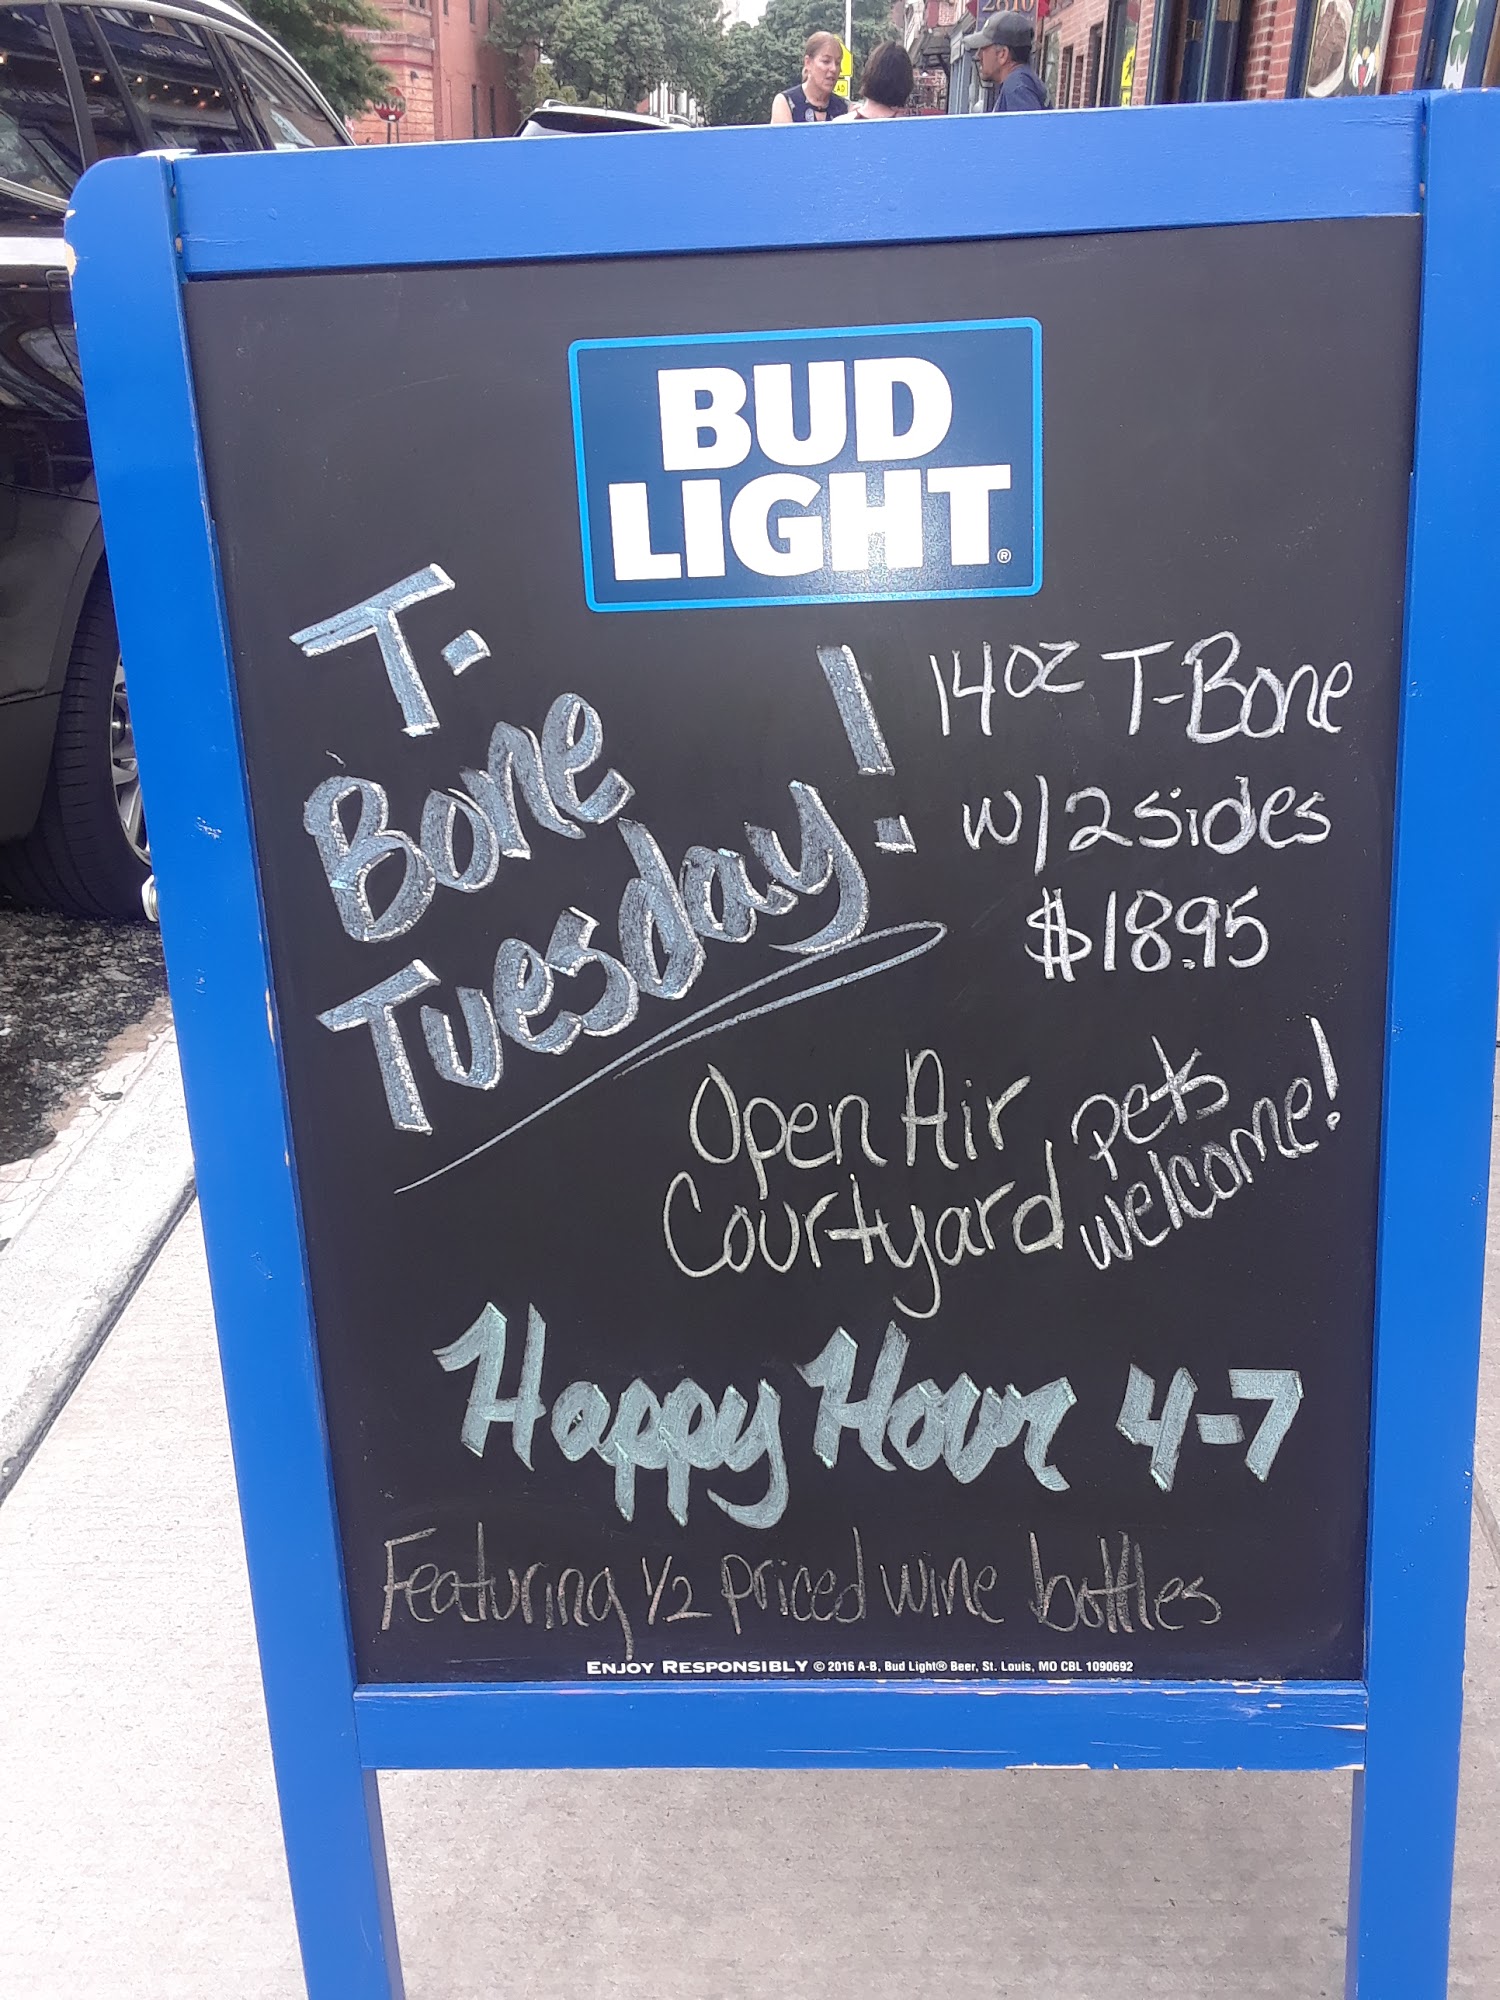 2610
BUD
LIGHT®
T-
Bone
Tuesday!
14oz T-Bone
w/2 sides
$18.95
Open Air
Courtyard
pets
welcome!
Happy Hour 4-7
Featuring 1/2 priced wine bottles
ENJOY RESPONSIBLY © 2016 A-B, Bud Light® Beer, St. Louis, MO CBL 1090692